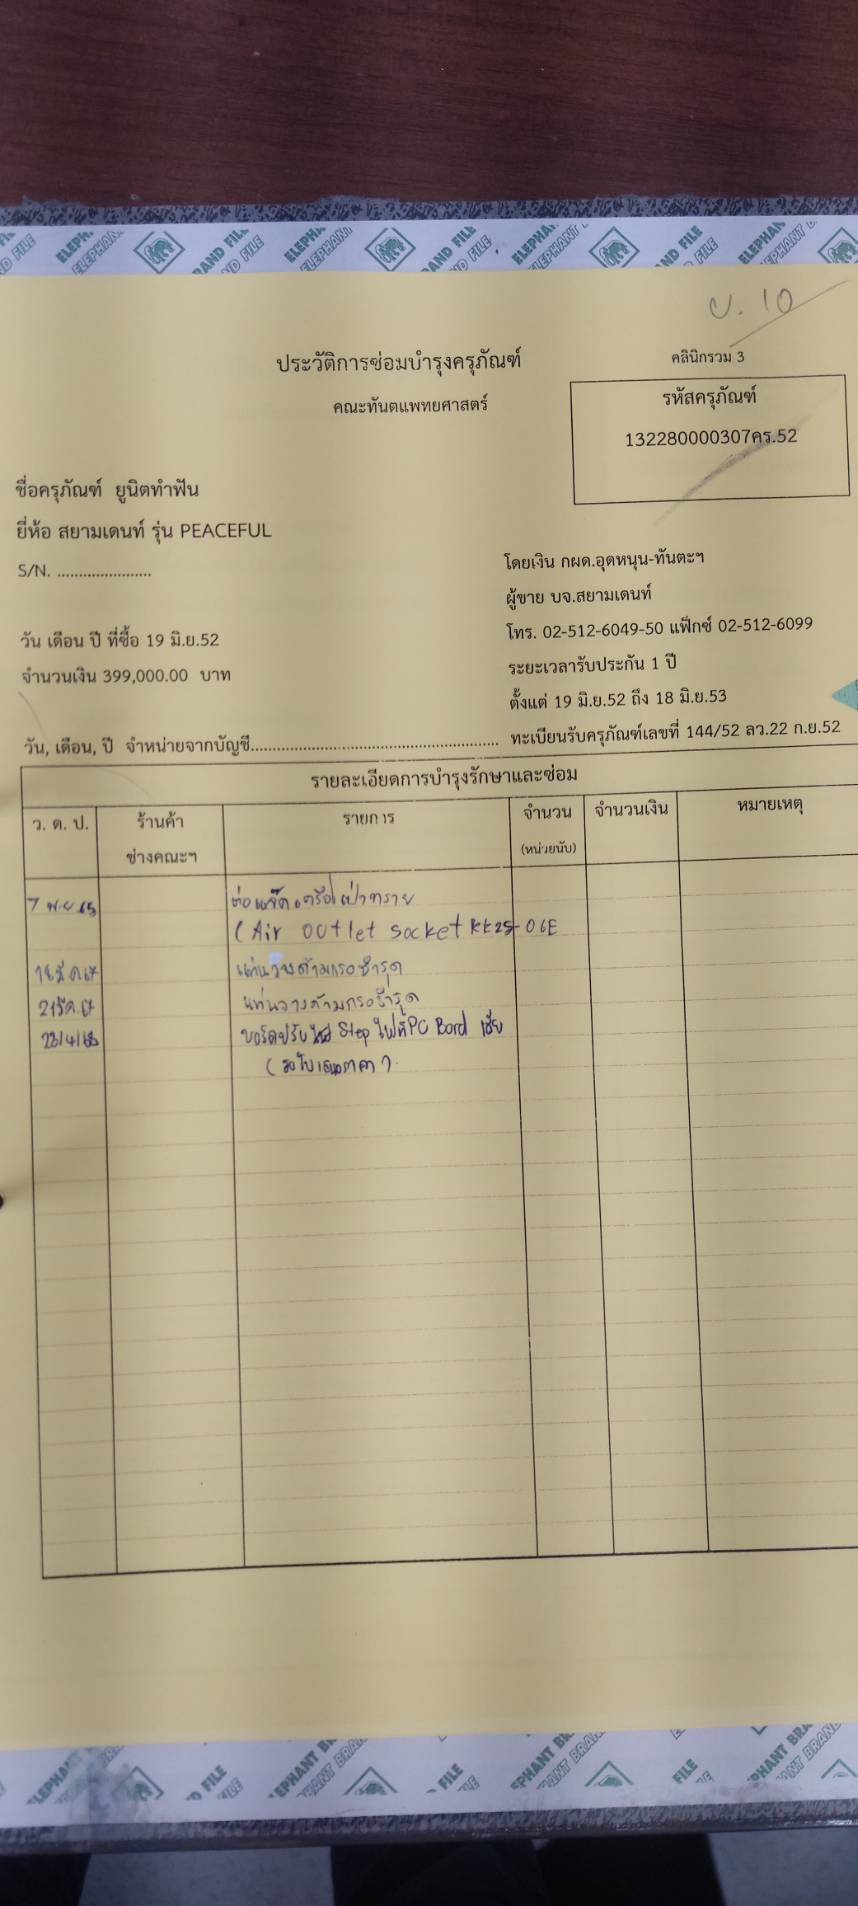 ย. 10
ประวัติการซ่อมบำรุงครุภัณฑ์
คลินิกรวม 3
คณะทันตแพทยศาสตร์
รหัสครุภัณฑ์
132280000307คร.52
ชื่อครุภัณฑ์ ยูนิตทำฟัน
ยี่ห้อ สยามเดนท์ รุ่น PEACEFUL
S/N. ......................
โดยเงิน กผด.อุดหนุน-ทันตะฯ
ผู้ขาย บจ.สยามเดนท์
วัน เดือน ปี ที่ซื้อ 19 มิ.ย.52
โทร. 02-512-6049-50 แฟ็กซ์ 02-512-6099
จำนวนเงิน 399,000.00 บาท
ระยะเวลารับประกัน 1 ปี
ตั้งแต่ 19 มิ.ย.52 ถึง 18 มิ.ย.53
วัน, เดือน, ปี จำหน่ายจากบัญชี......................................................
ทะเบียนรับครุภัณฑ์เลขที่ 144/52 ลว.22 ก.ย.52
รายละเอียดการบำรุงรักษาและซ่อม
ว. ด. ป. ร้านค้า รายการ จำนวน จำนวนเงิน หมายเหตุ
ช่างคณะฯ (หน่วยนับ)
7 พ.ย 65 เป่าทราย
(Air outlet socket KK2S-06E
แท่นวางด้ามกรอชำรุด
แท่นวางด้ามกรอชำรุด
23/4/68 บอร์ดปรับ Step ไฟที่ PC Bord เสีย
(ขอใบเสนอราคา).
ELEPHANT
BRAND FILE